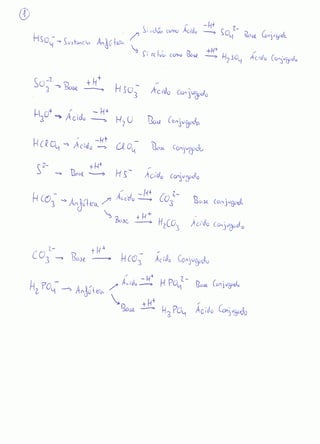 ①
Si actúa como Ácido -H⁺→ SO₄²⁻ Base Conjugada
HSO₄⁻ → Sustancia Anfótera
Si actúa como Base +H⁺→ H₂SO₄ Ácido Conjugado
SO₃⁻² → Base +H⁺→ HSO₃⁻ Ácido conjugado
H₃O⁺ → Ácido -H⁺→ H₂O Base Conjugada
HClO₄ → Ácido -H⁺→ ClO₄⁻ Base conjugada
S²⁻ → Base +H⁺→ HS⁻ Ácido conjugado
HCO₃⁻ → Anfótera Ácido -H⁺→ CO₃²⁻ Base conjugada
Base +H⁺→ H₂CO₃ Ácido conjugado
CO₃²⁻ → Base +H⁺→ HCO₃⁻ Ácido Conjugado
H₂PO₄⁻ → Anfótera Ácido -H⁺→ HPO₄²⁻ Base Conjugada
Base +H⁺→ H₃PO₄ Ácido Conjugado